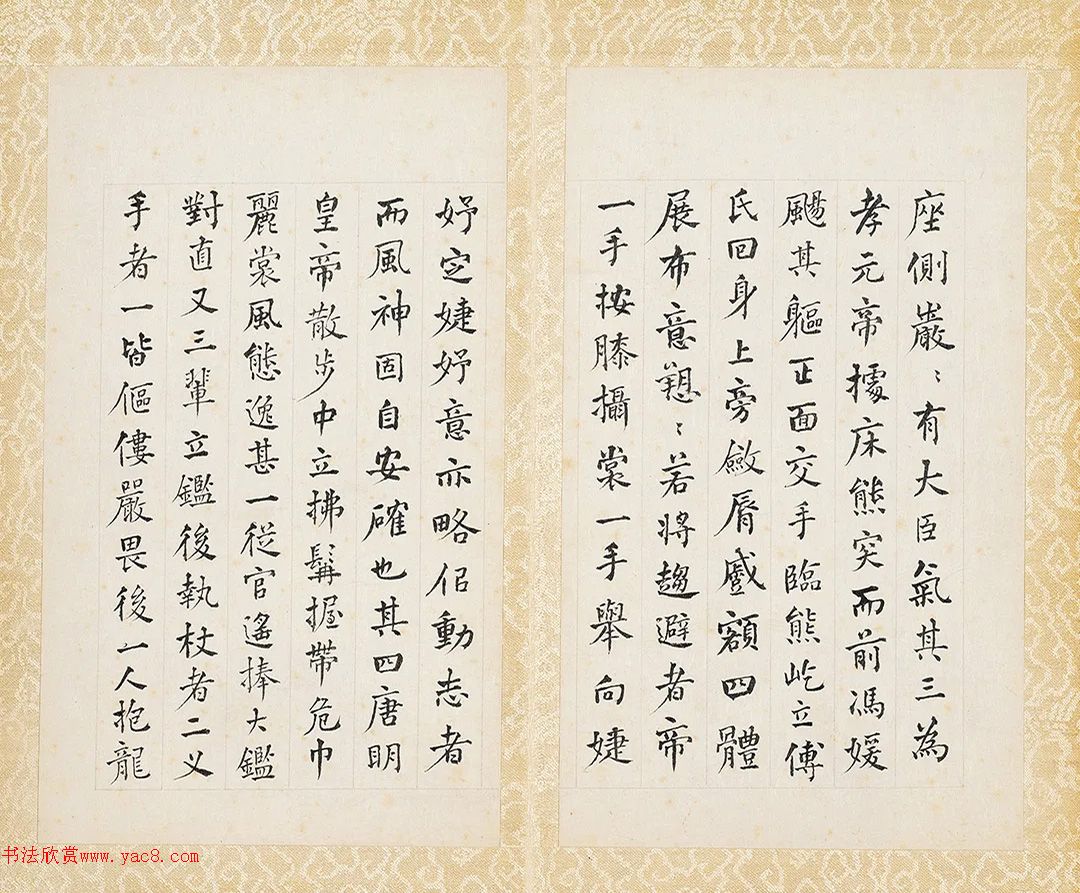 座側巖〻有大臣氣其三為
孝元帝據床熊突而前馮媛
颺其軀正面交手臨熊屹立傅
氏回身上旁斂脣蹙額四體
展布意懇〻若將趨避者帝
一手按膝攝裳一手舉向婕
妤定婕妤意亦略佀動志者
而風神固自安確也其四唐明
皇帝散步中立拂髯握帶危巾
麗裳風態逸甚一從官遙捧大鑑
對直又三輩立鑑後執杖者二义
手者一皆傴僂嚴畏後一人抱龍
书法欣赏www.yac8.com